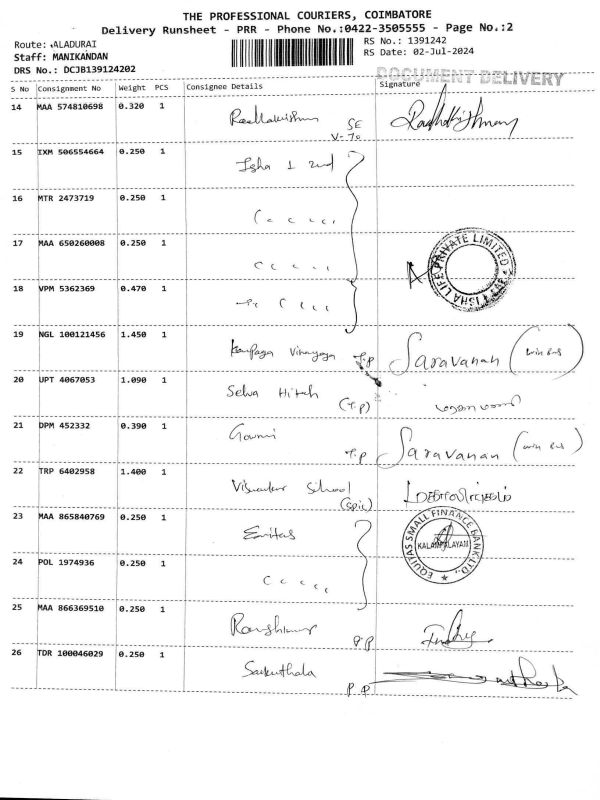 THE PROFESSIONAL COURIERS, COIMBATORE
Delivery Runsheet - PRR - Phone No.:0422-3505555 - Page No.:2
Route: ALADURAI
RS No.: 1391242
Staff: MANIKANDAN
RS Date: 02-Jul-2024
DRS No.: DCJB139124202
DOCUMENT DELIVERY
S No Consignment No Weight PCS Consignee Details Signature
14 MAA 574810698 0.320 1 Radhakrishnan
SE
V-70
15 IXM 506554664 0.250 1 Isha 1 2nd
16 MTR 2473719 0.250 1
17 MAA 650260008 0.250 1
ISHA LIFE PRIVATE LIMITED
18 VPM 5362369 0.470 1
19 NGL 100121456 1.450 1 Vinayaga T.P Saravanan
20 UPT 4067053 1.090 1 Selva Hitech
(T.P)
21 DPM 452332 0.390 1 Gowri T.P Saravanan
22 TRP 6402958 1.400 1 School
23 MAA 865840769 0.250 1 Equitas
EQUITAS SMALL FINANCE BANK LTD.,
KALAMPALAYAM
24 POL 1974936 0.250 1
25 MAA 866369510 0.250 1
P.P
26 TDR 100046029 0.250 1 Sakunthala
P.P